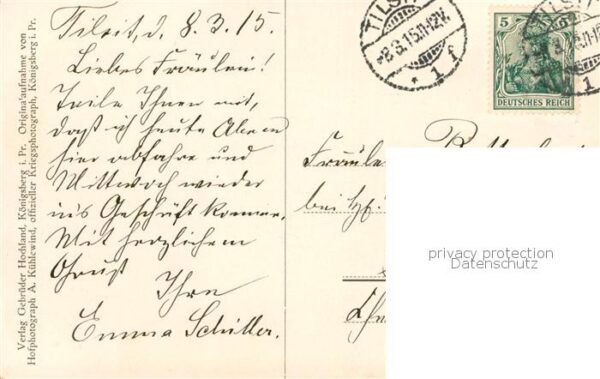 Verlag Gebrüder Hochland, Königsberg i. Pr. Originalaufnahme von
Hofphotograph A. Kühlewind, offizieller Kriegsphotograph, Königsberg i. Pr.
Tilsit, d. 8.3.15.
Liebes Fräulein!
Teile Ihnen mit,
daß ich heute Abend
hier abfahre und
Mittwoch wieder
ins Geschäft komme.
Mit herzlichem
Gruß Ihre
Emma Schiller.
TILSIT
-8.3.15.11-12V.
* 1 f
5
DEUTSCHES REICH
TILSIT
1
Fräulei
bei
privacy protection
Datenschutz